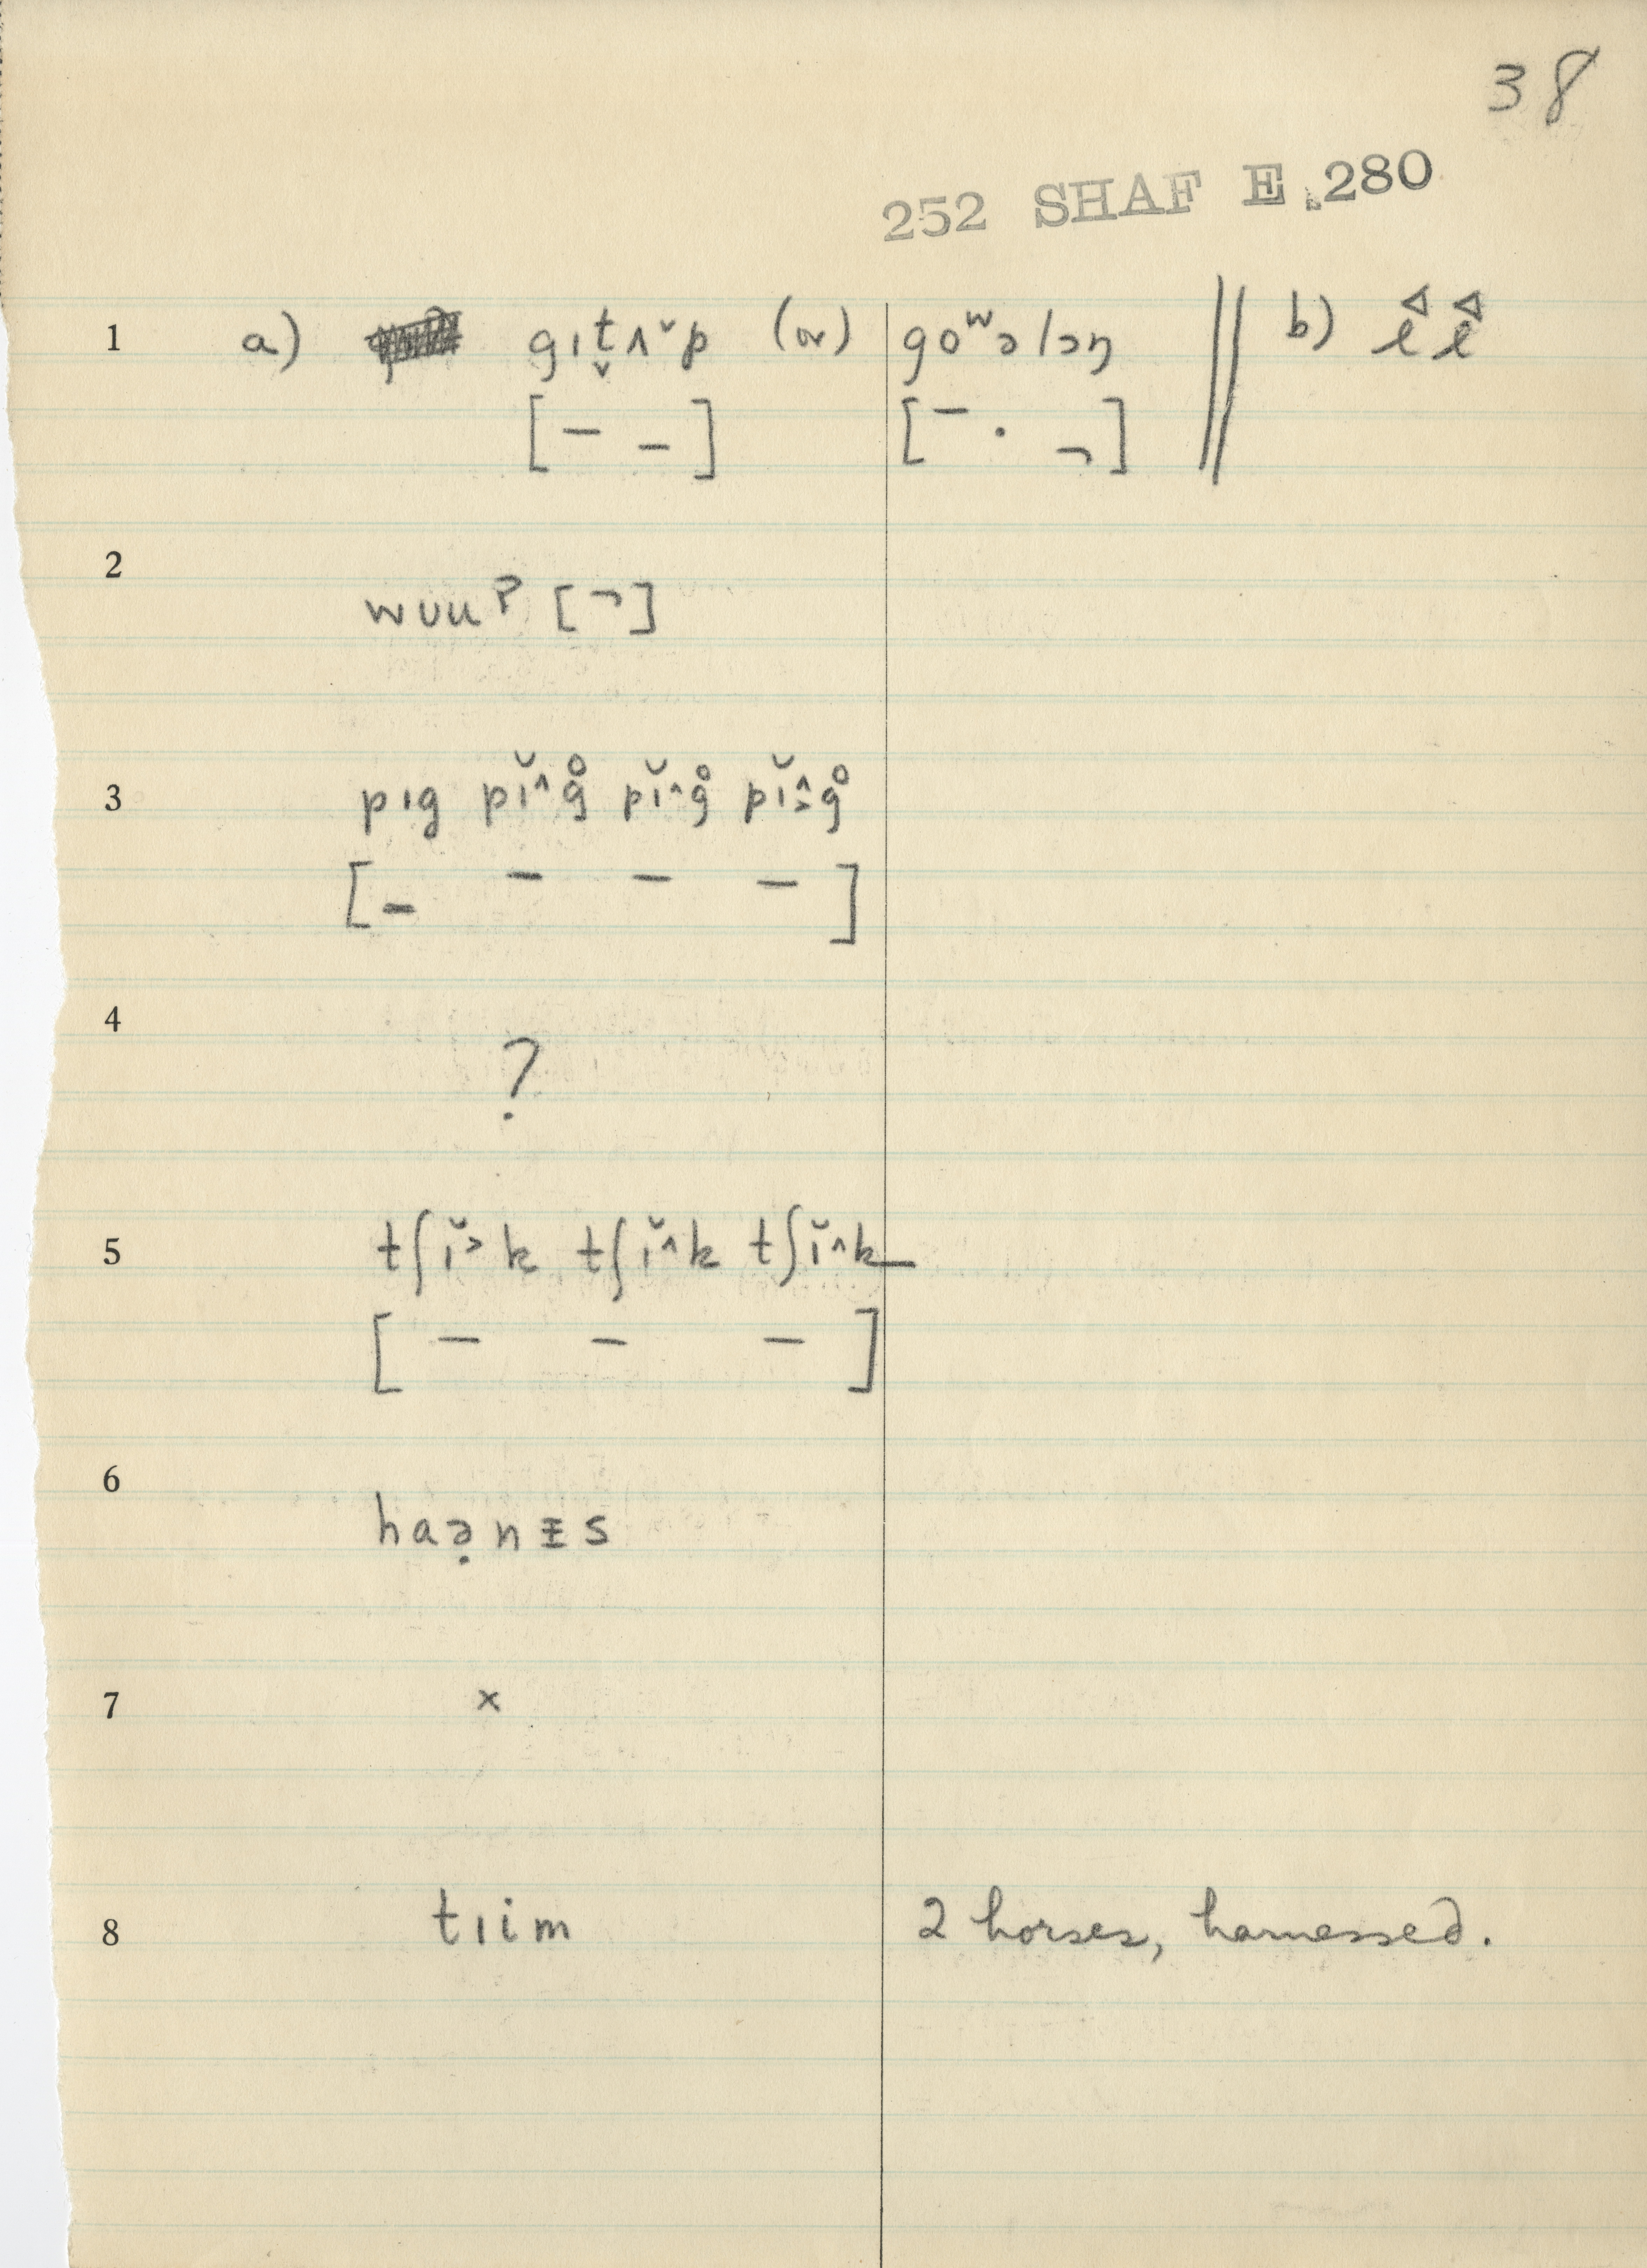 38
252 SHAF E 280
1 a) gɪt̬ʌ˅p (or) goʷəlɔŋ || b)
[– –] [– · ¬]
2 wʊuˀ [¬]
3 pɪg pɪ̆˄g̊ pɪ̆˄g̊ pɪ̆˄˃g̊
[– – – –]
4 ?
5 tʃɪ̆˃k tʃɪ̆˄k tʃɪ̆˄k
[– – –]
6 haə̣nɪ̵s
7 ×
8 tɪim 2 horses, harnessed.